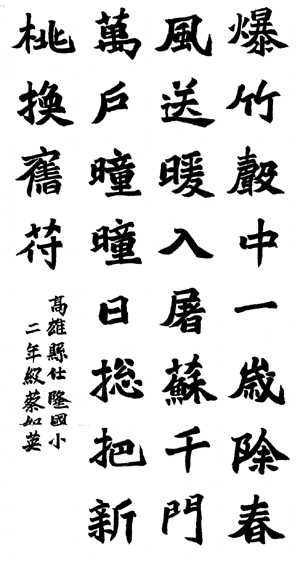 爆竹聲中一歲除春
風送暖入屠蘇千門
萬戶曈曈日總把新
桃換舊符
高雄縣仕隆國小
二年級蔡如英